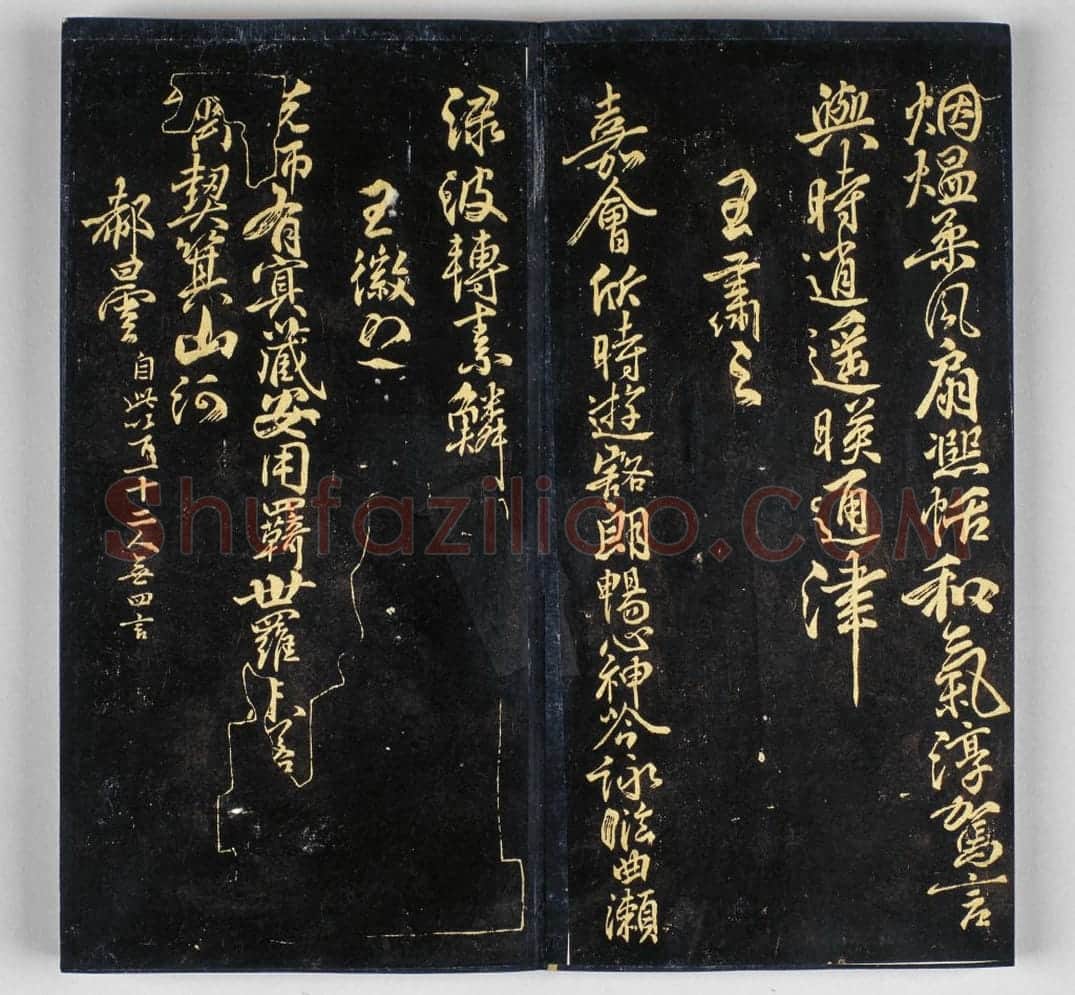 烟熅柔風扃熙恬和氣淳駕言
與時逍遥暎通津
王肅之
嘉會欣時遊豁朗暢心神吟詠曲瀨
淥波轉素鱗
王徽之
先師有冥藏安用羈世羅未若
齊契箕山河
郗曇 自此一十二人無四言
Shufaziliao.COM